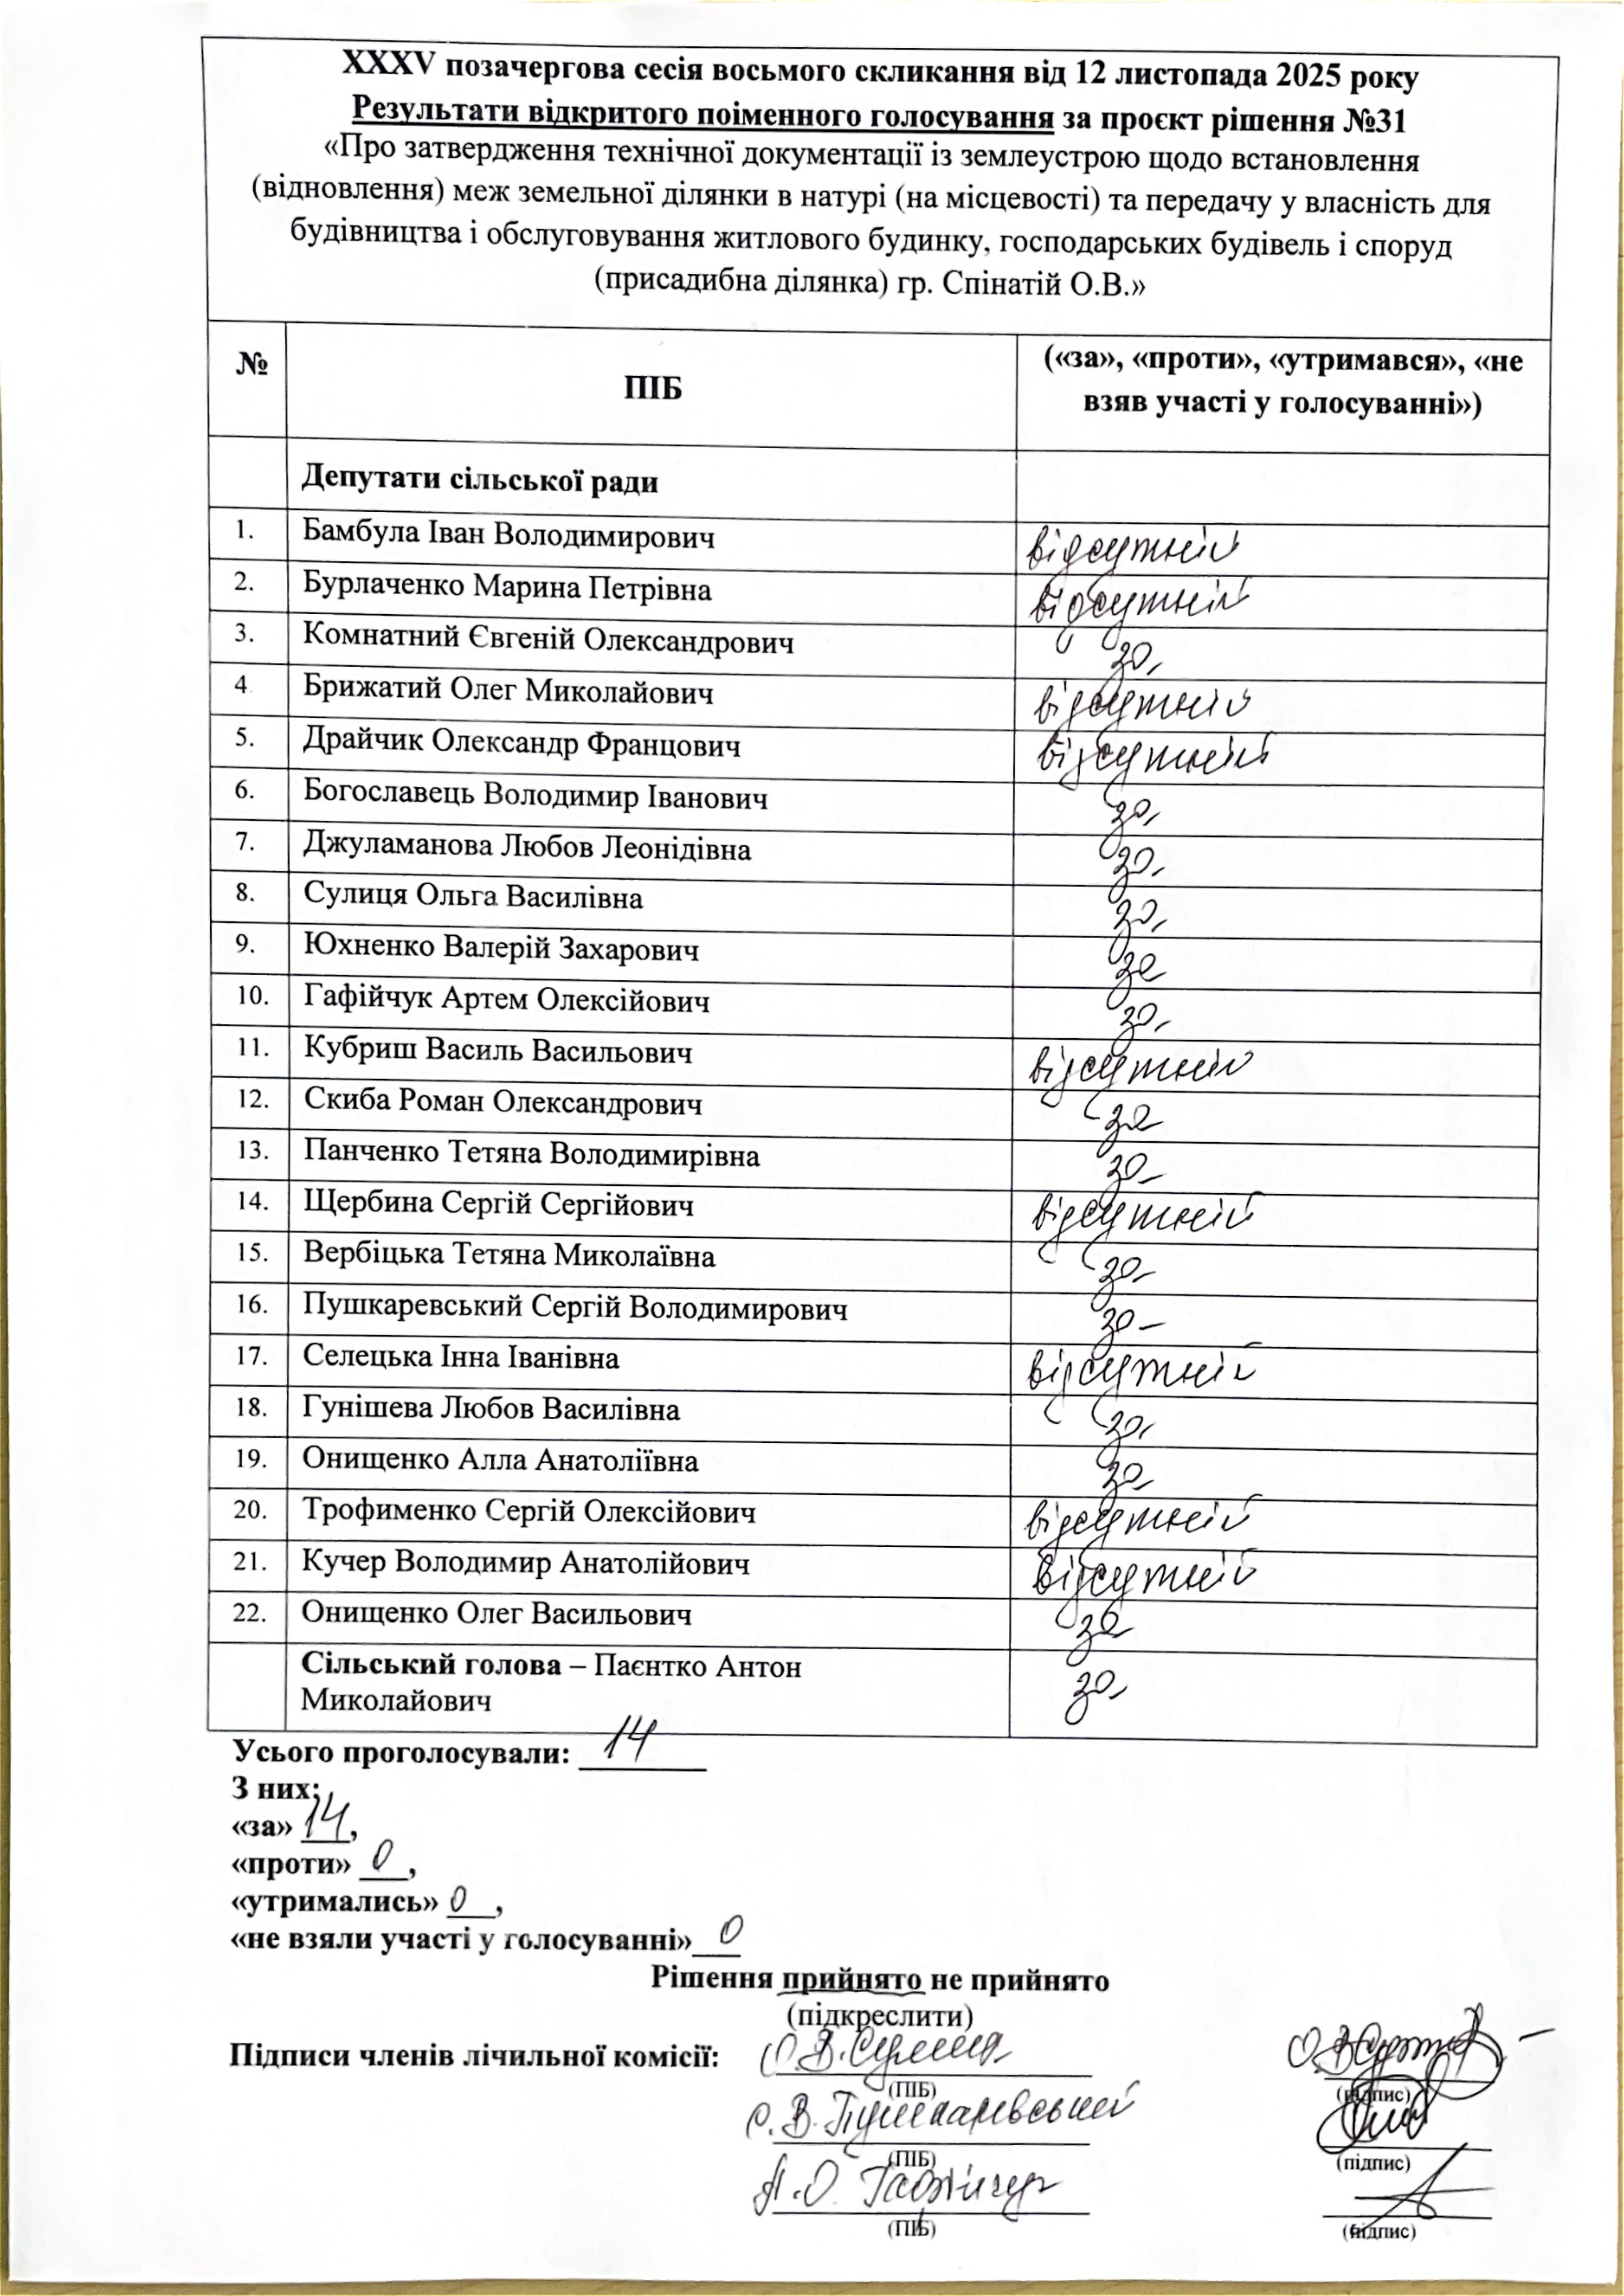 XXXV позачергова сесія восьмого скликання від 12 листопада 2025 року
Результати відкритого поіменного голосування за проєкт рішення №31
«Про затвердження технічної документації із землеустрою щодо встановлення
(відновлення) меж земельної ділянки в натурі (на місцевості) та передачу у власність для
будівництва і обслуговування житлового будинку, господарських будівель і споруд
(присадибна ділянка) гр. Спінатій О.В.»
№ ПІБ («за», «проти», «утримався», «не
взяв участі у голосуванні»)
Депутати сільської ради
1. Бамбула Іван Володимирович відсутній
2. Бурлаченко Марина Петрівна відсутній
3. Комнатний Євгеній Олександрович за
4 Брижатий Олег Миколайович відсутній
5. Драйчик Олександр Францович відсутній
6. Богославець Володимир Іванович за
7. Джуламанова Любов Леонідівна за
8. Сулиця Ольга Василівна за
9. Юхненко Валерій Захарович за
10. Гафійчук Артем Олексійович за
11. Кубриш Василь Васильович відсутній
12. Скиба Роман Олександрович за
13. Панченко Тетяна Володимирівна за
14. Щербина Сергій Сергійович відсутній
15. Вербіцька Тетяна Миколаївна за
16. Пушкаревський Сергій Володимирович за
17. Селецька Інна Іванівна відсутній
18. Гунішева Любов Василівна за
19. Онищенко Алла Анатоліївна за
20. Трофименко Сергій Олексійович відсутній
21. Кучер Володимир Анатолійович відсутній
22. Онищенко Олег Васильович за
Сільський голова – Паєнтко Антон
Миколайович за
Усього проголосували: 14
З них:
«за» 14,
«проти» 0,
«утримались» 0,
«не взяли участі у голосуванні» 0
Рішення прийнято не прийнято
(підкреслити)
Підписи членів лічильної комісії: О.В. Сулиця
(ПІБ) (підпис)
С.В. Пушкаревський
(ПІБ) (підпис)
А.О. Гафійчук
(ПІБ) (підпис)